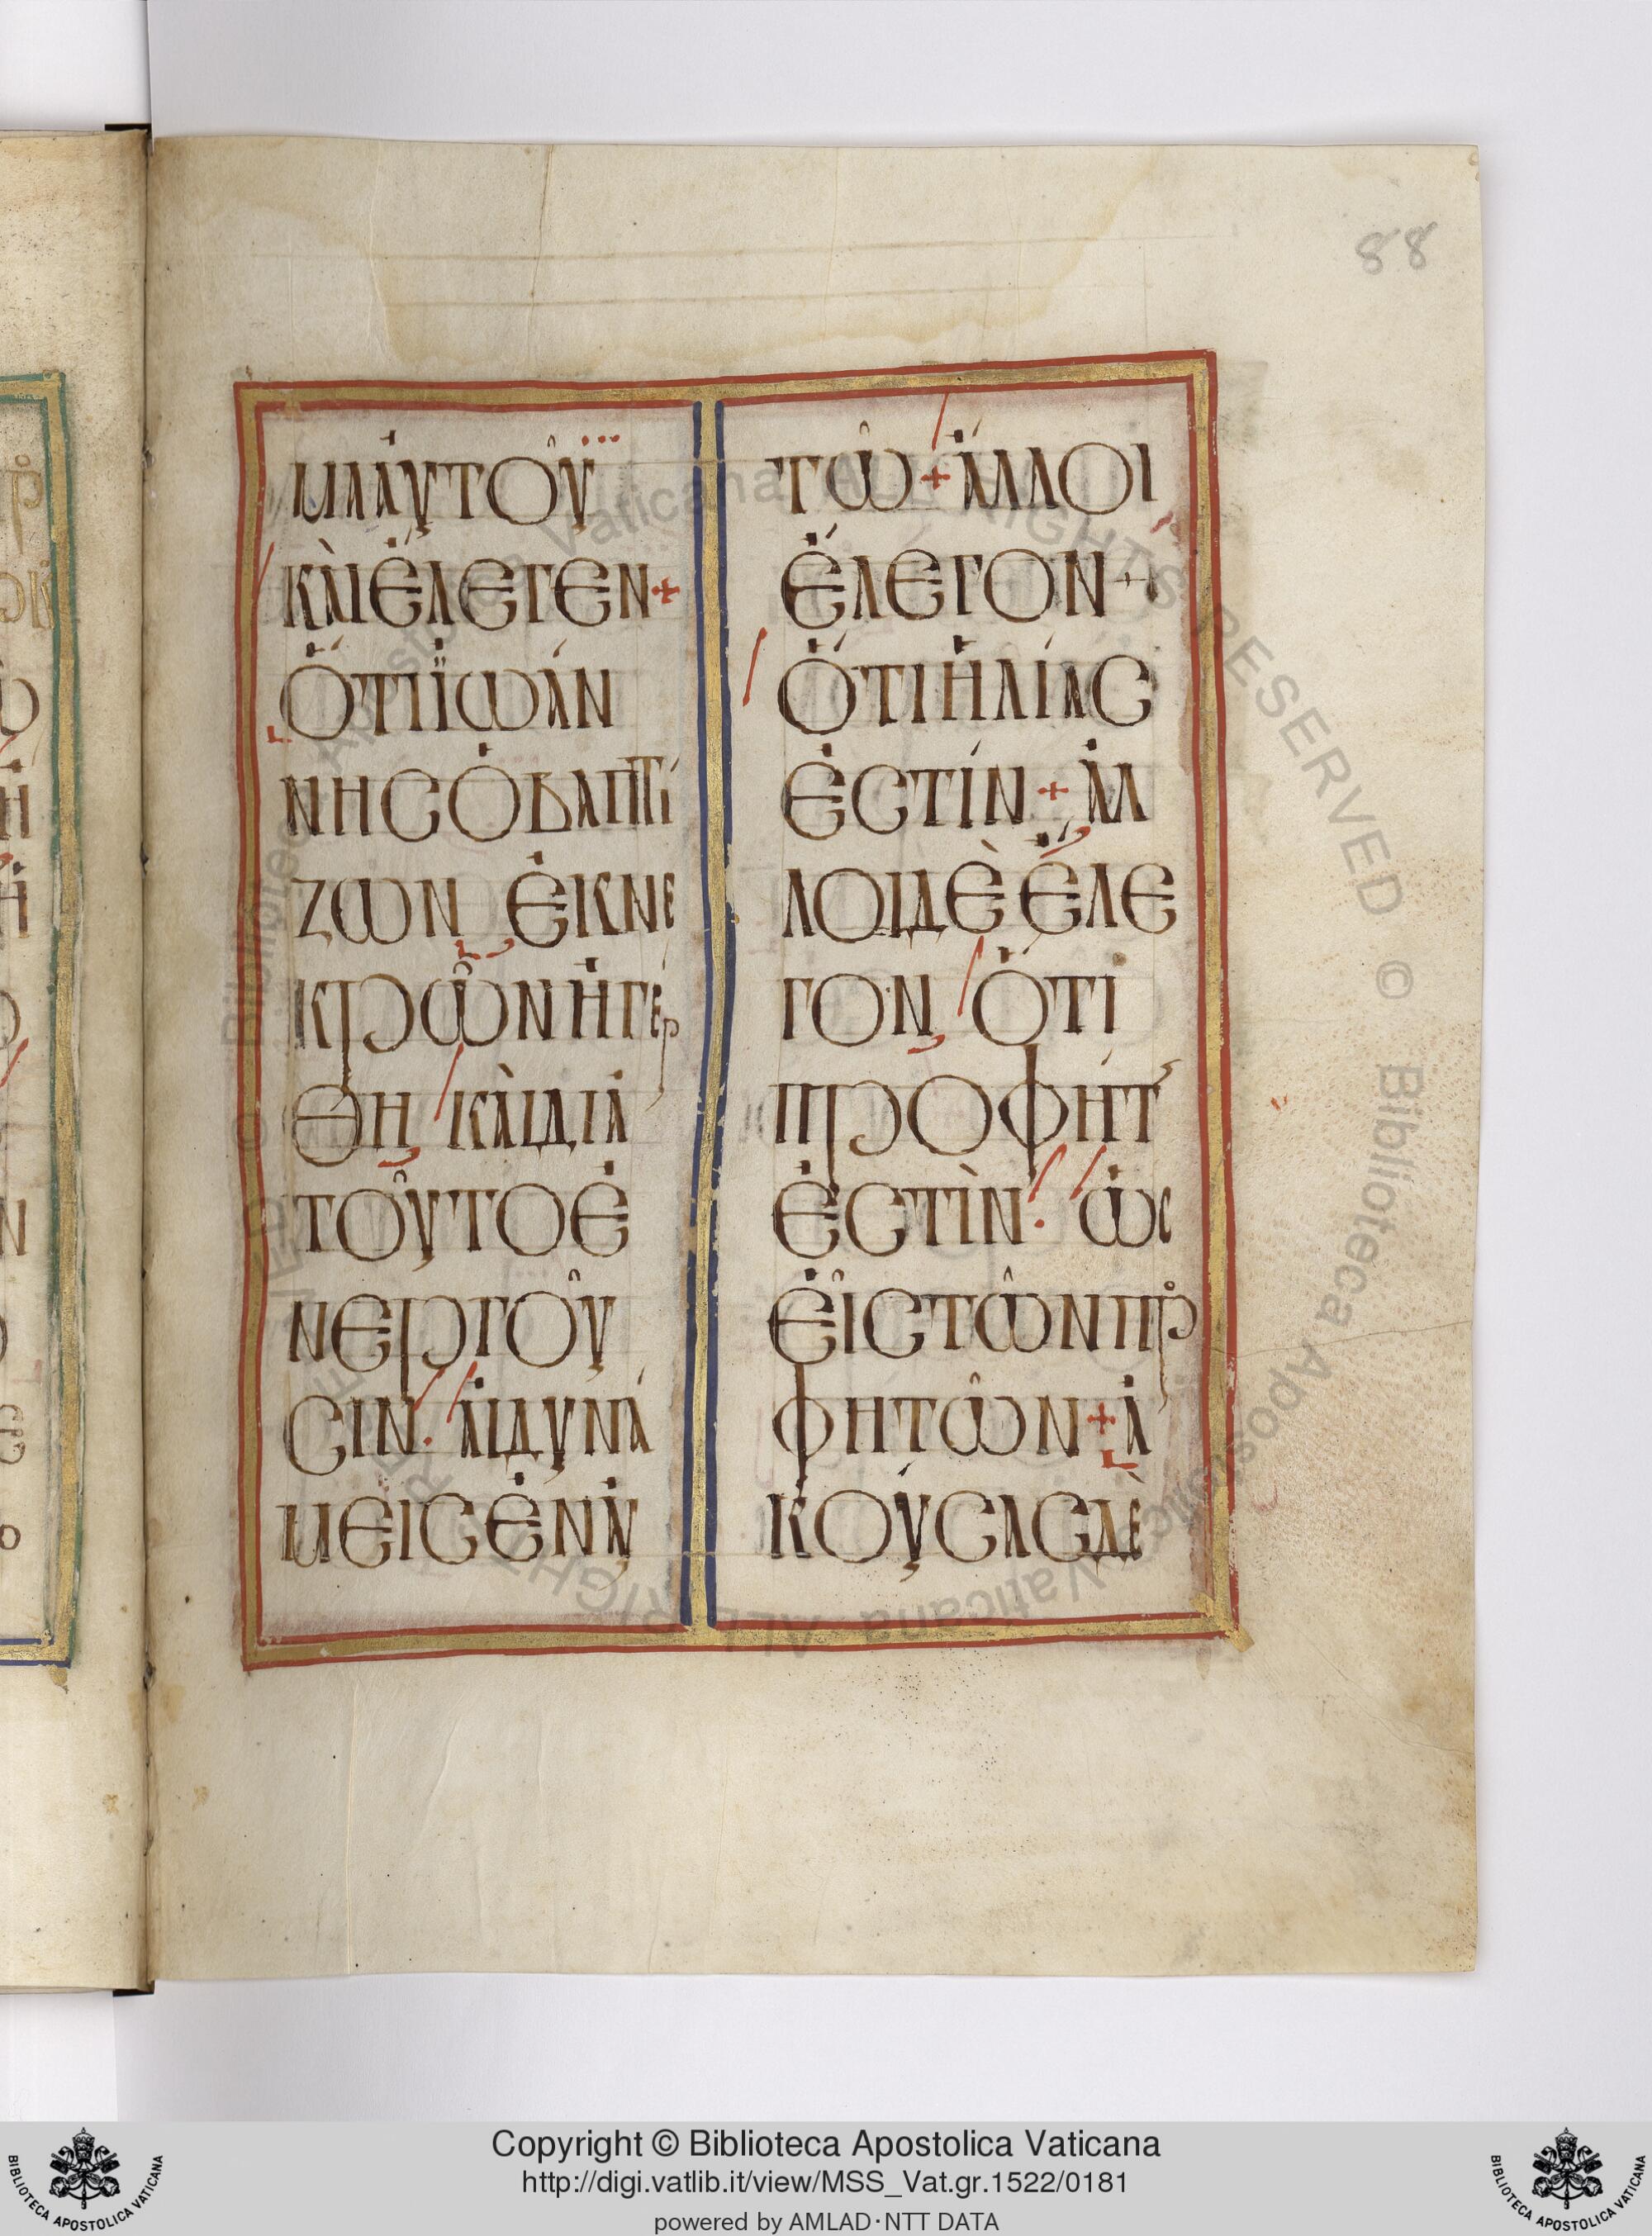 88
ΜΑἈΥΤΟΥ͂
ΚᾺΙἘΛΕΓΕΝ+
ὍΤΙΪΩΆΝ
ΝΗΣὉΒΑΠΤΊ
ΖΩΝ ἘΚΝΕ
ΚΡΩ͂ΝἨΓΈΡ
ΘΗ ΚᾺΙΔΙΑ
ΤΟΥ͂ΤΟἘ
ΝΕΡΓΟΥ͂
ΣΙΝ· ἈΙΔΥΝΆ
ΜΕΙΣἘΝἈΥ
ΤΩ͂+ἌΛΛΟΙ
ἜΛΕΓΟΝ+
ὍΤΙἨΛΊΑΣ
ἘΣΤΊΝ+ἌΛ
ΛΟΙΔῈἜΛΕ
ΓΟΝ ὍΤΙ
ΠΡΟΦΉΤ
ἘΣΤῚΝ· ὩΣ
ἘΙ͂ΣΤΩ͂ΝΠΡΟ
ΦΗΤΩ͂Ν+Ἀ
ΚΟΎΣΑΣΔῈ
Copyright © Biblioteca Apostolica Vaticana
http://digi.vatlib.it/view/MSS_Vat.gr.1522/0181
powered by AMLAD·NTT DATA
BIBLIOTECA APOSTOLICA VATICANA
BIBLIOTECA APOSTOLICA VATICANA